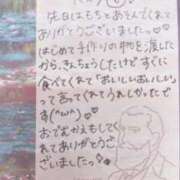 先日はもちとあそんでくれて
ありがとうございましたっ♥
はじめて手作りの物を渡した
から、きんちょうしたけどすぐに
食べてくれて「おいしいおいしい」
って言ってくれてうれしかったで
す(^ω^)
おでむかえもしてく
れてありがとう
ございましたっ